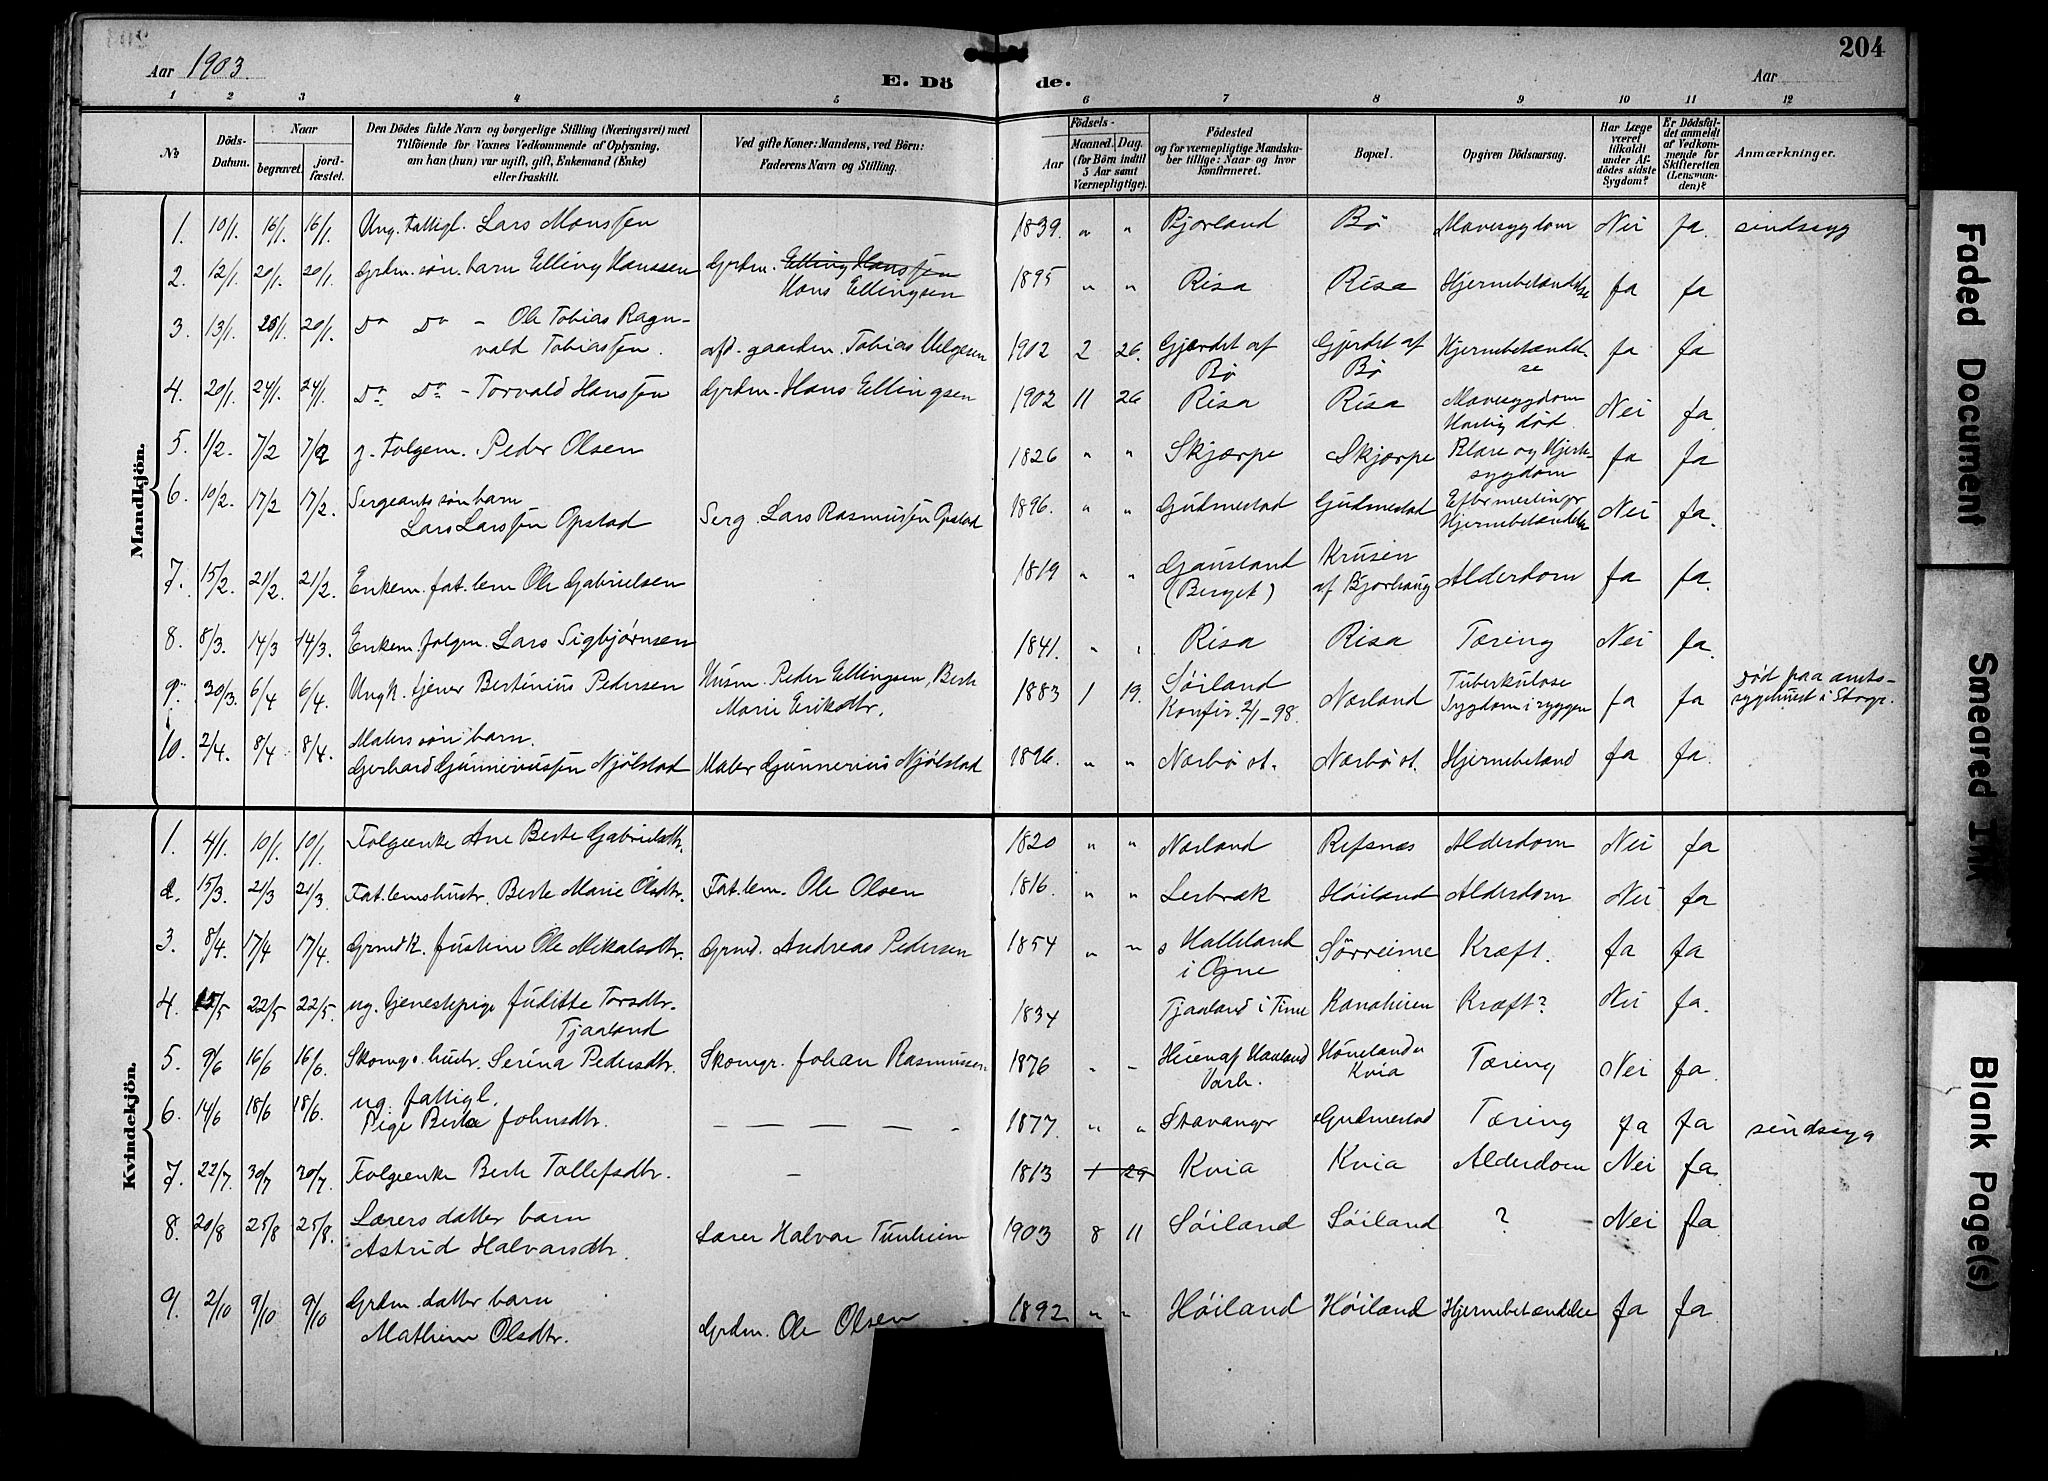 204
Aar 1903.
E. Döde.
Aar
1 2 3 4 5 6 7 8 9 10 11 12
No
Döds-Datum.
Naar
begravet.
jord-fæstet.
Den Dödes fulde Navn og borgerlige Stilling (Næringsvei) med
Tilföiende for Voxnes Vedkommende af Oplysning,
om han (hun) var ugift, gift, Enkemand (Enke)
eller fraskilt.
Ved gifte Koner: Mandens, ved Börn:
Faderens Navn og Stilling.
Födsels-
Aar
Maaned. Dag.
(for Börn indtil
5 Aar samt
Værnepligtige).
Födested
og for værnepligtige Mandska-
ber tillige: Naar og hvor
konfirmeret.
Bopæl.
Opgiven Dödsaarsag.
Har Læge
været
tilkaldt
under Af-
dödes sidste
Sygdom?
Er Dödsfal-
det anmeldt
af Vedkom-
mende for
Skifteretten
(Lensman-
den)?
Anmærkninger.
Mandkjön.
1. 10/1. 16/1. 16/1. Ung. fattigl. Lars Monssen 1839. " " Bjorland Bö Mavesygdom Nei Ja. sindssyg
2. 12/1. 20/1. 20/1. Grdm. søn. barn Elling Hanssen Grdm. Elling Hanssen
Hans Ellingsen 1895 " " Risa Risa Hjernebetændelse Ja Ja
3. 13/1. 20/1. 20/1. Do Do - Ole Tobias Ragn-
vald Tobiassen. afd. gaardm. Tobias Helgesen 1902 2 26. Gjærdet af
Bö Gjerdet af
Bö Hjernebetændel-
se Ja Ja
4. 20/1. 24/1. 24/1. Do Do - Torvald Hanssen Grdm. Hans Ellingsen 1902 11 26 Risa Risa Mavesygdom
Hastig død. Nei Ja.
5. 1/2. 7/2 7/2 g. Folgem. Peder Olsen 1826 " " Skjærpe Skjærpe Blære og Hjerte-
sygdom Ja Ja
6. 10/2. 17/2 17/2. Sergeants søn barn
Lars Larssen Opstad Serg. Lars Rasmussen Opstad 1896. " " Gudmestad Gudmestad Efter meslinger
Hjernebetændelse Nei Ja.
7. 15/2. 21/2. 21/2. Enkem. fat.lem Ole Gabrielsen 1819 " " Gausland
(Berget) Krusen
af Bjorhaug Alderdom Ja Ja.
8. 8/3. 14/3 14/3. Enkem. folgm. Lars Sigbjørnsen 1841. " " Risa Risa Tæring Nei Ja.
9. 30/3. 6/4 6/4. Ungk. tjener Bertinius Pedersen Husm. Peder Ellingsen, Berte
Marie Eriksdtr. 1883 1 19. Søiland
Konfir. 2/1-98. Nærland Tuberkuløse
Sygdom i ryggen Ja Ja Død paa amts-
sygehuset i Stvgr.
10. 2/4. 8/4 8/4. Malers søn barn.
Gerhard Gunneriussen Njølstad Maler Gunnerius Njølstad 1896. " " Nærbø st. Nærbø st. Hjernebetænd Ja Ja.
Kvindekjön.
1. 4/1. 10/1. 10/1. Folgeenke Ane Berte Gabrielsdtr. 1820 " " Nærland Refsnæs Alderdom Nei Ja
2. 15/3. 21/3 21/3. Fat.lemshustr. Berte Marie Olsdtr. Fat.lem. Ole Olsen 1816. " " Lerbræk Høiland Alderdom Nei Ja
3. 8/4. 17/4 17/4. Grmdk. Justine Ole Mikalsdtr. Grmd. Andreas Pedersen 1854 " " Halleland
i Ogne Sørreime Kræft. Ja Ja
4. 15/5 22/5 22/5. ug. tjenestepige Juditte Torsdtr.
Tjaaland 1834 Tjaaland i Time Kræft? Nei Ja.
5. 9/6 16/6 16/6. Skomgr. hustr. Serina Pedersdtr. Skomgr. Johan Rasmussen 1876 " " Hæien af Haaland
Varh. Kvia Tæring Nei Ja.
6. 14/6 18/6 18/6. ug. fattigl.
Pige Berta Johnsdtr. 1877. " " Stavanger Gudmestad Tæring Ja Ja sindssyg
7. 22/7. 30/7 30/7. Folgeenke Berte Tollefsdtr. - 1813 1 29 Kvia Kvia Alderdom Nei Ja.
8. 20/8 25/8 25/8. Lærers datter barn
Astrid Halvarsdtr. Lærer Halvar Tunheim 1903 8 11 Søiland Søiland ? Nei Ja.
9. 2/10 9/10 9/10 Grdm. datter barn
Mathine Olsdtr. Grdm. Ole Olsen 1892 " " Høiland Høiland Hjernebetændelse Ja Ja
Faded Document
Smeared Ink
Blank Page(s)